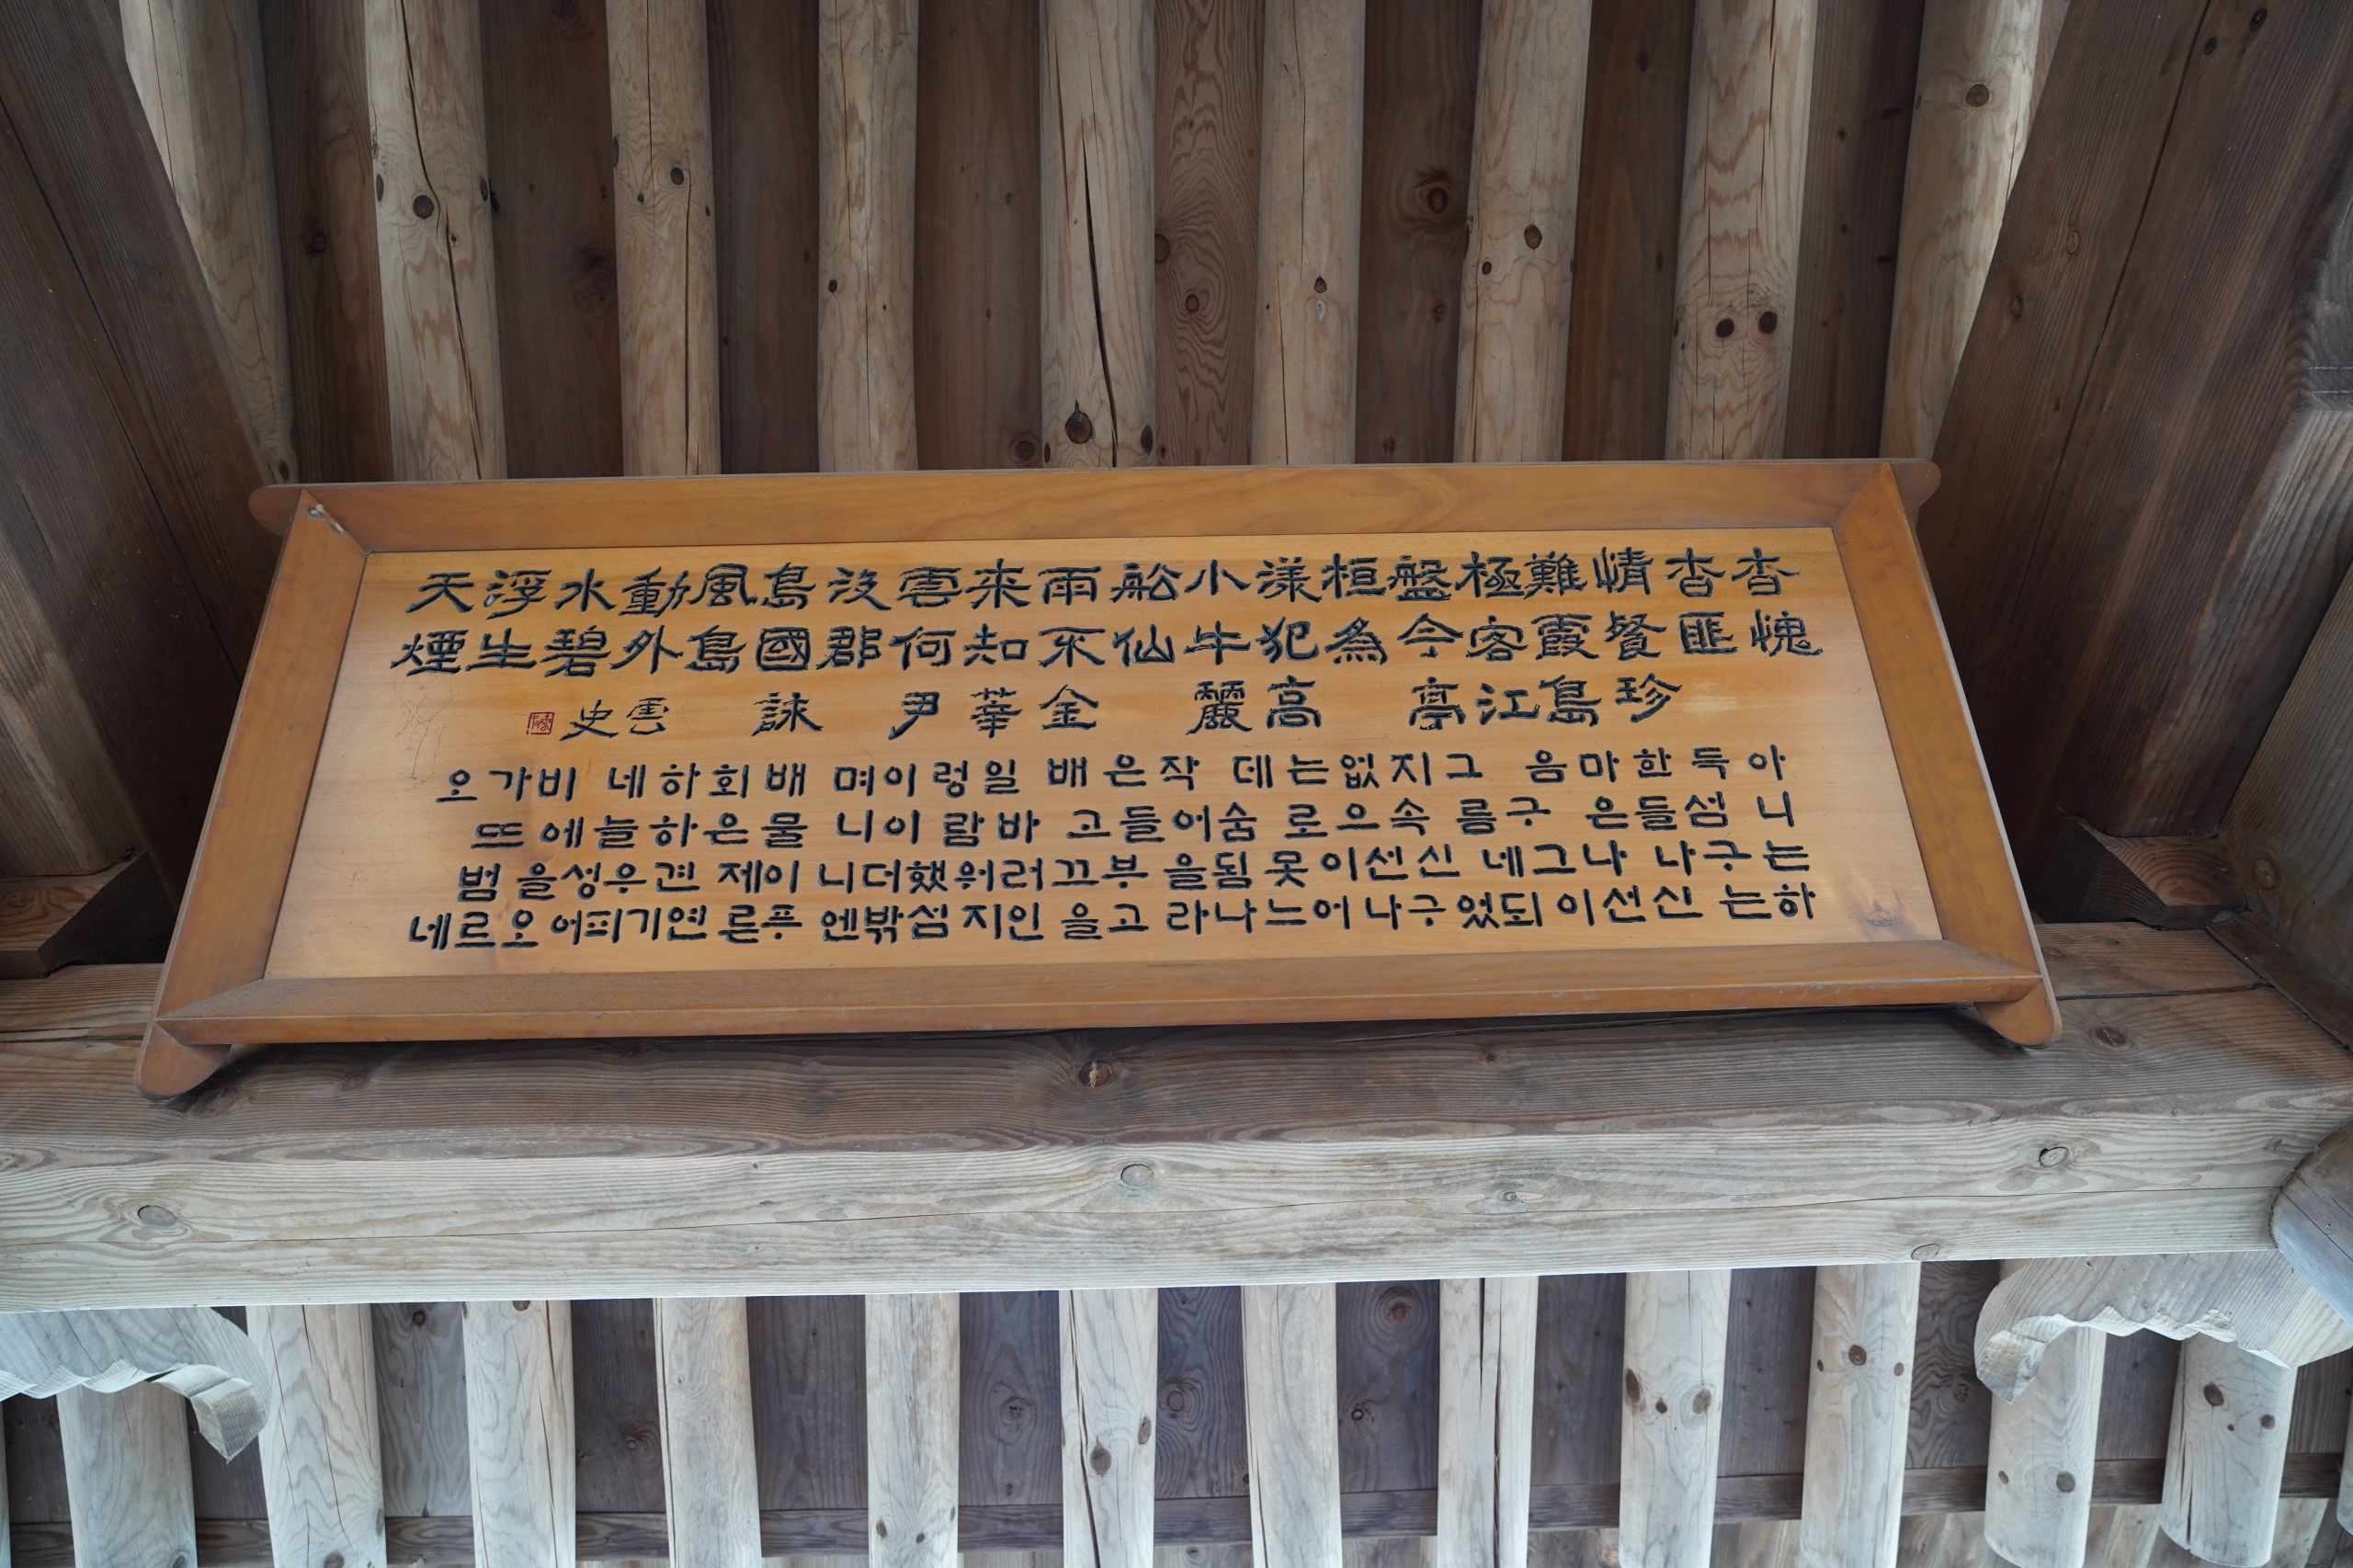 杳杳情難極盤桓漾小舩雨来雲没島風動水浮天
愧匪餐霞客今為犯牛仙不知何郡國島外碧生煙
珍島江亭 高麗 金莘尹 詠 雲史
아득한마음 그지없는데 작은배 일렁이며 배회하네 비가오
니 섬들은 구름 속으로 숨어들고 바람이니 물은하늘에뜨
는구나 나그네 신선이못됨을 부끄러워했더니 이제 견우성을 범
하는 신선이되었구나어느나라 고을인지 섬밖엔 푸른연기피어오르네